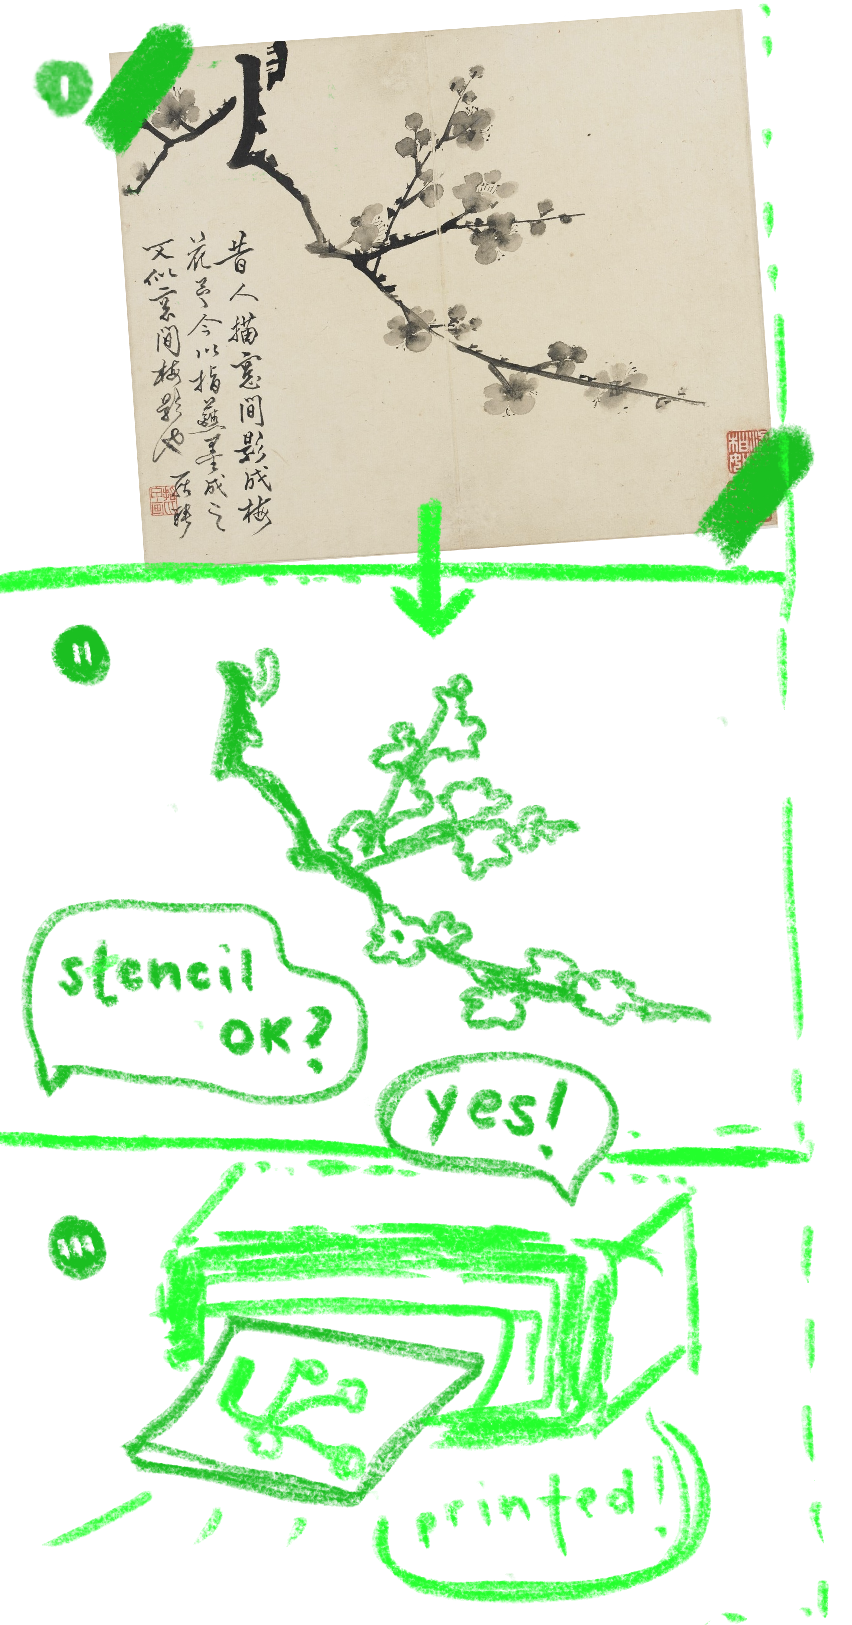 I
昔人描窓間影成梅
花予今以指蘸墨成之
又似窓間梅影也
II
stencil
OK?
yes!
III
printed!